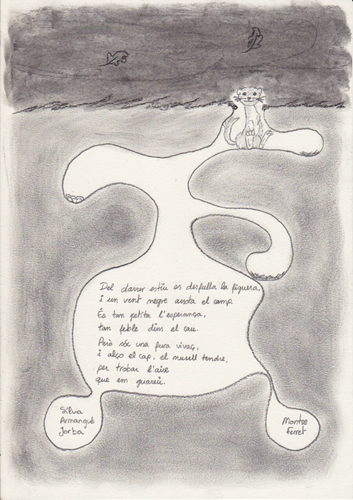 Del darrer estiu es despulla la figuera,
i un vent negre assota el camp.
És tan petita l'esperança,
tan feble dins el cau.
Però sóc una fura vivaç,
i alço el cap, el musell tendre,
per trobar l'aire
que em guareix.
Sílvia
Armangué
Jorba
Montse
Ferret